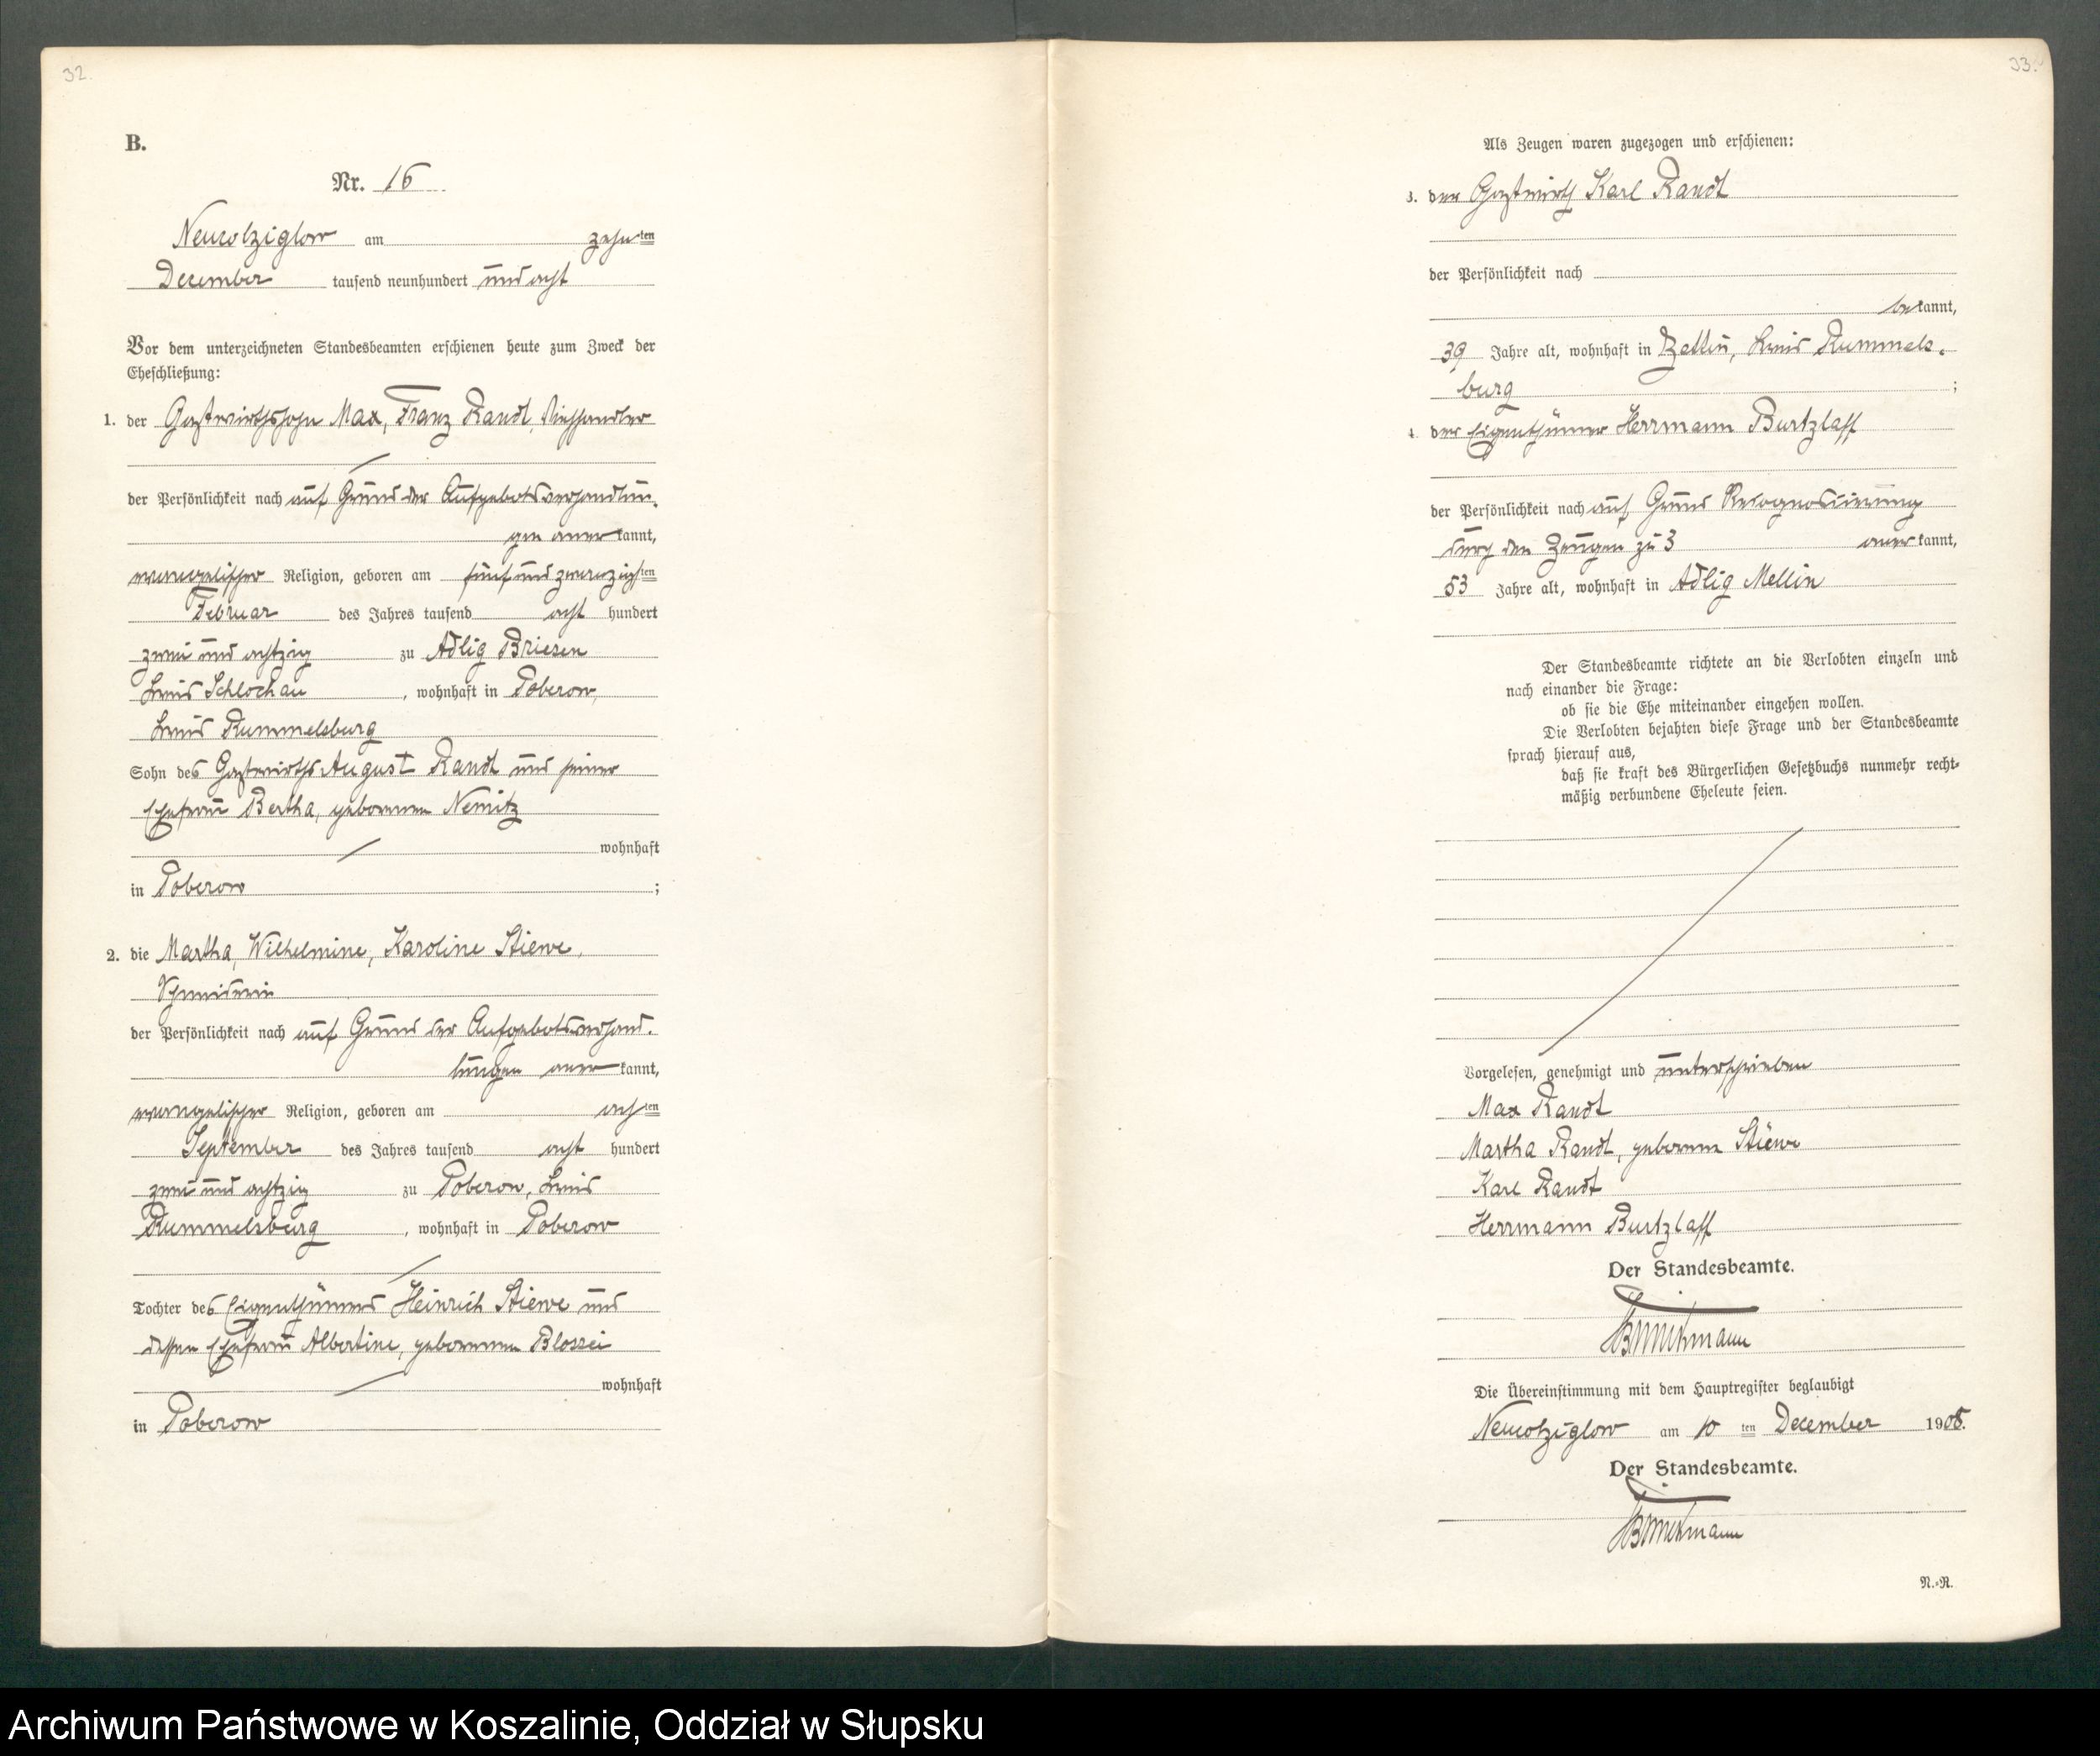 32.
B.
Nr. 16
Neukolziglow am zehnten
December tausend neunhundert und acht
Vor dem unterzeichneten Standesbeamten erschienen heute zum Zweck der
Eheschließung:
1. der Gastwirthssohn Max, Franz Randt, Viehhändler
der Persönlichkeit nach auf Grund der Aufgebotsverhandlun-
gen anerkannt,
evangelischer Religion, geboren am fünfundzwanzigsten
Februar des Jahres tausend acht hundert
zwei und achtzig zu Adlig Briesen
Kreis Schlochau, wohnhaft in Poberow,
Kreis Rummelsburg
Sohn des Gastwirths August Randt und seiner
Ehefrau Bertha, geborenen Nemitz
wohnhaft
in Poberow;
2. die Martha, Wilhelmine, Karoline Stiewe,
Schneiderin
der Persönlichkeit nach auf Grund der Aufgebotsverhand-
lungen anerkannt,
evangelischer Religion, geboren am achten
September des Jahres tausend acht hundert
zwei und achtzig zu Poberow, Kreis
Rummelsburg, wohnhaft in Poberow
Tochter des Eigenthümers Heinrich Stiewe und
dessen Ehefrau Albertine, geborenen Blossei
wohnhaft
in Poberow
33.
Als Zeugen waren zugezogen und erschienen:
3. der Gastwirth Karl Randt
der Persönlichkeit nach
bekannt,
39 Jahre alt, wohnhaft in Zettin, Kreis Rummels-
burg;
4. der Eigenthümer Herrmann Burtzlaff
der Persönlichkeit nach auf Grund Rekognoscierung
durch den Zeugen zu 3 anerkannt,
53 Jahre alt, wohnhaft in Adlig Mellin
Der Standesbeamte richtete an die Verlobten einzeln und
nach einander die Frage:
ob sie die Ehe miteinander eingehen wollen.
Die Verlobten bejahten diese Frage und der Standesbeamte
sprach hierauf aus,
daß sie kraft des Bürgerlichen Gesetzbuchs nunmehr recht-
mäßig verbundene Eheleute seien.
Vorgelesen, genehmigt und unterschrieben
Max Randt
Martha Randt, geborene Stiewe
Karl Randt
Herrmann Burtzlaff
Der Standesbeamte.
Die Übereinstimmung mit dem Hauptregister beglaubigt
Neukolziglow am 10ten December 1908.
Der Standesbeamte.
N.-R.
Archiwum Państwowe w Koszalinie, Oddział w Słupsku